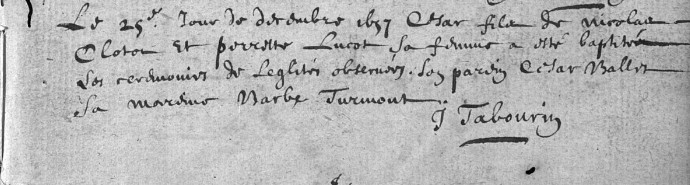 Le 25e. Jour de decembre 1657 Cesar fils de Nicolas
Cloton Et perrette Lucot sa femme a esté baptisé
Les ceremonies de Leglise observées. son parein Cesar Ballet
sa mareine Barbe Turmont J Tabourin